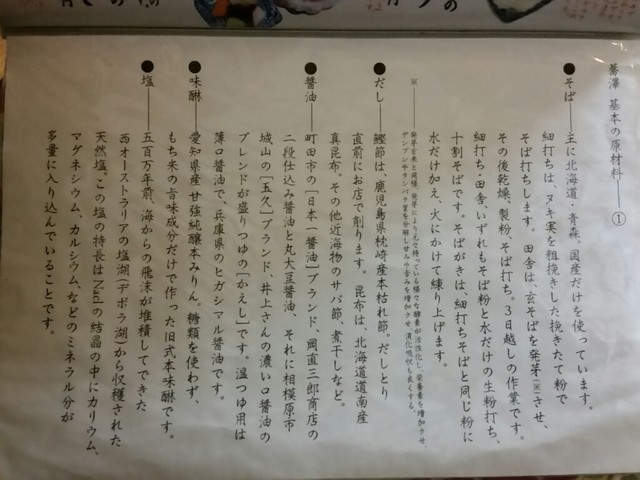 蕎澤 基本の原材料――①
●そば――主に北海道・青森。国産だけを使っています。
細打ちは、ヌキ実を粗挽きした挽きたて粉で
そば打ちします。田舎は、玄そばを発芽(※)させ、
その後乾燥、製粉、そば打ち。3日越しの作業です。
細打ち・田舎、いずれもそば粉と水だけの生粉打ち、
十割そばです。そばがきは、細打ちそばと同じ粉に
水だけ加え、火にかけて練り上げます。
※――発芽玄米と同様、発芽により元々持っている様々な酵素が活性化し、栄養素を増加させ、
デンプンやタンパク質を分解し甘みや旨みを増加させ、消化吸収も良くする。
●だし――鰹節は、鹿児島県枕崎産本枯れ節。だしとり
直前にお店で削ります。昆布は、北海道道南産
真昆布。その他近海物のサバ節、煮干しなど。
●醤油――町田市の「日本一醤油」ブランド、岡直三郎商店の
二段仕込み醤油と丸大豆醤油、それに相模原市
城山の「五久」ブランド、井上さんの濃い口醤油の
ブレンドが盛りつゆの「かえし」です。温つゆ用は
薄口醤油で、兵庫県のヒガシマル醤油です。
●味醂――愛知県産甘強純醸本みりん。糖類を使わず、
もち米の旨味成分だけで作った旧式本味醂です。
●塩――五百万年前、海からの飛沫が堆積してできた
西オーストラリアの塩湖(デボラ湖)から収穫された
天然塩。この塩の特長はNaclの結晶の中にカリウム、
マグネシウム、カルシウム、などのミネラル分が
多量に入り込んでいることです。